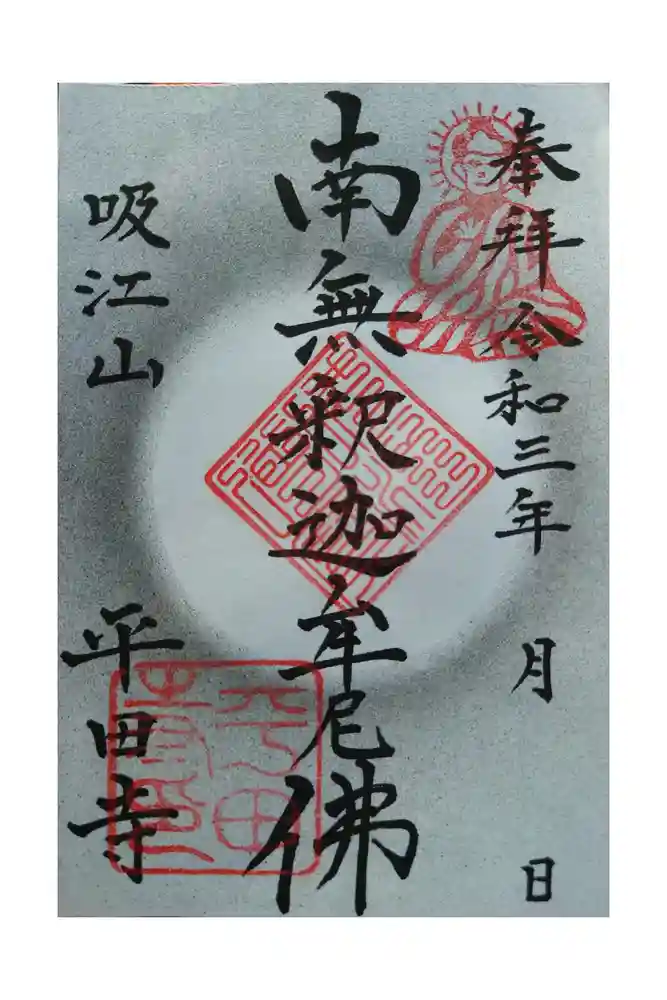 奉拝令和三年 月 日
南無釈迦牟尼佛
吸江山 平田寺